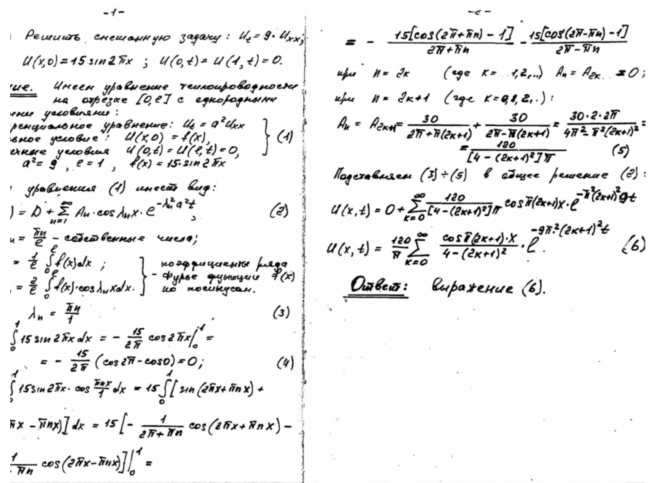 -1-
Решить смешанную задачу: U_t = 9·U_xx;
U(x,0) = 15 sin 2πx ; U(0,t) = U(1,t) = 0.
ние. Имеем уравнение теплопроводности
на отрезке [0,ℓ] с однородными
ми условиями:
ренциальное уравнение: U_t = a² U_xx
ьное условие: U(x,0) = f(x), } (1)
ные условия U(0,t) = U(ℓ,t) = 0,
a² = 9, ℓ = 1, f(x) = 15·sin 2πx
уравнения (1) имеет вид:
) = D + ∑_{n=1}^{∞} A_n · cos λ_n x · e^{-λ_n² a² t}, (2)
n = πn/ℓ - собственные числа;
= 1/ℓ ∫_0^ℓ f(x)dx ; } - коэффициенты ряда
- Фурье функции f(x)
= 2/ℓ ∫_0^ℓ f(x)·cos λ_n x dx. по косинусам.
λ_n = πn/1 (3)
∫_0^1 15 sin 2πx dx = - 15/2π cos 2πx |_0^1 =
= - 15/2π (cos 2π - cos 0) = 0; (4)
∫_0^1 15 sin 2πx · cos πnx/1 dx = 15 ∫_0^1 [ sin(2πx + πnx) +
πx - πnx)] dx = 15 [ - 1/(2π + πn) cos(2πx + πnx) -
1/(-πn) cos(2πx - πnx)] |_0^1 =
-2-
= - 15[cos(2π+πn) - 1]/(2π+πn) - 15[cos(2π-πn) - 1]/(2π-πn)
при n = 2k (где k = 1,2,..) A_n = A_2k = 0;
при n = 2k+1 (где k = 0,1,2,..):
A_n = A_{2k+1} = 30/(2π+π(2k+1)) + 30/(2π-π(2k+1)) = 30·2·2π/(4π²-π²(2k+1)²) =
= 120/([4-(2k+1)²]π) (5)
Подставляем (3)÷(5) в общее решение (2):
U(x,t) = 0 + ∑_{k=0}^{∞} 120/([4-(2k+1)²]π) cos π(2k+1)x · e^{-π²(2k+1)²9t}
U(x,t) = 120/π ∑_{k=0}^{∞} cos π(2k+1)·x/(4-(2k+1)²) · e^{-9π²(2k+1)²t}. (6)
Ответ: выражение (6).